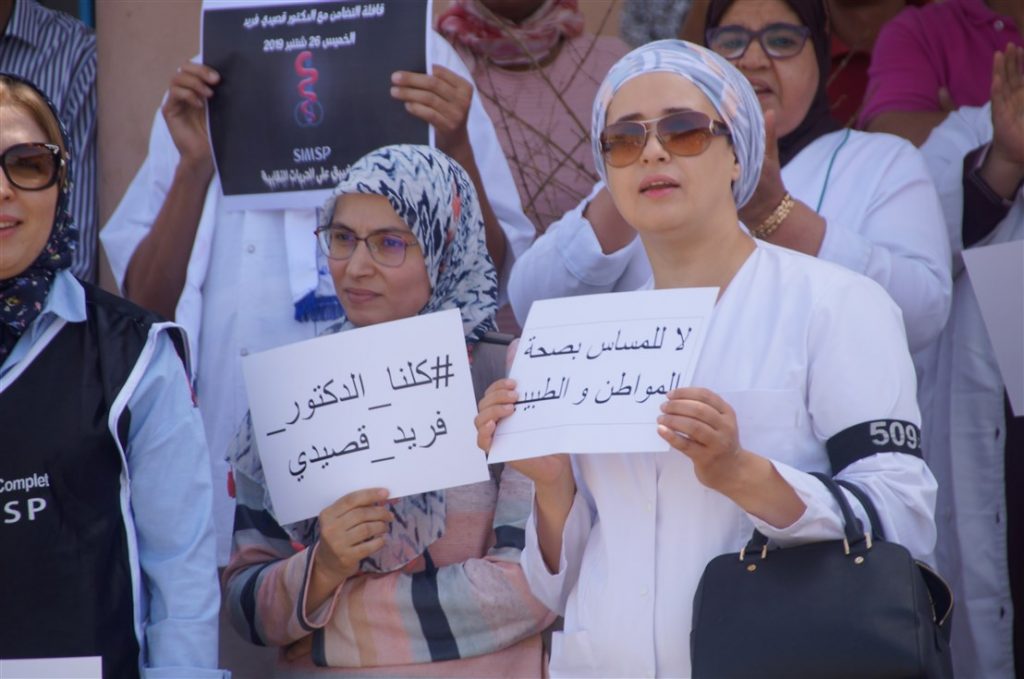 قافلة التضامن مع الدكتور قصيدي فريد
الخميس 26 شتنبر 2019
SIMSP
على الحريات النقابية
#كلنا_الدكتور_
فريد_قصيدي
لا للمساس بصحة
المواطن و الطبيب
509
Complet
SP